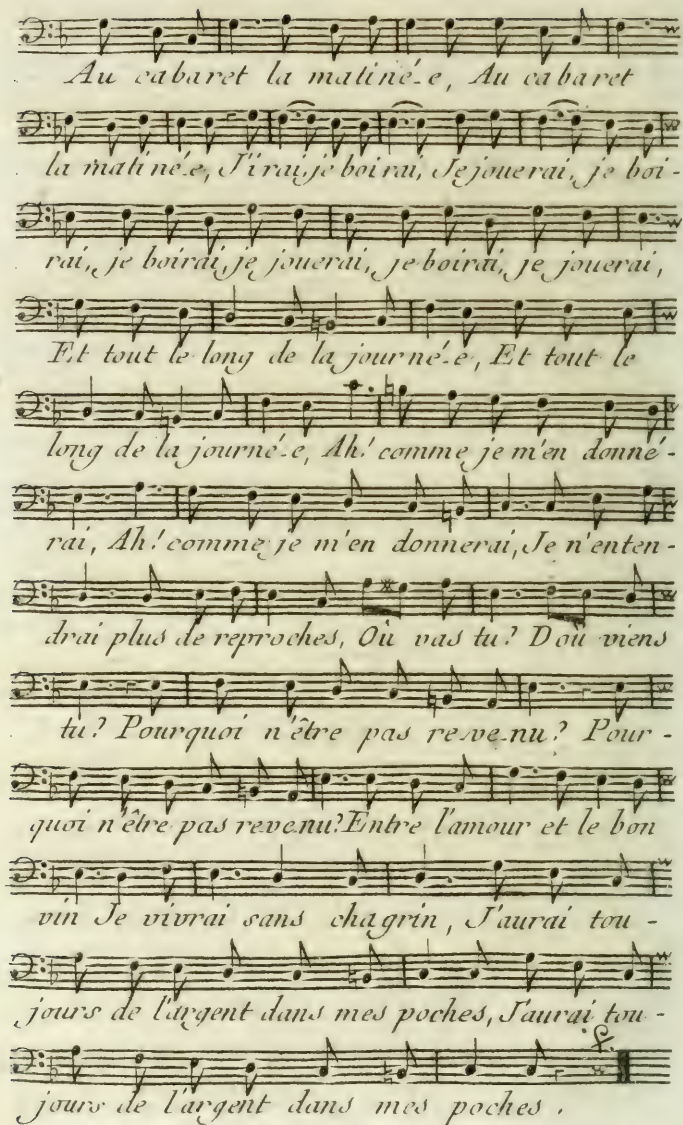 Au cabaret la matiné-e, Au cabaret
la matiné-e, J'irai, je boirai, Je jouerai, je boi-
rai, je boirai, je jouerai, je boirai, je jouerai,
Et tout le long de la journé-e, Et tout le
long de la journé-e, Ah! comme je m'en donné-
rai, Ah! comme je m'en donnerai, Je n'enten-
drai plus de reproches, Où vas tu? D'où viens
tu? Pourquoi n'être pas re-ve-nu? Pour-
quoi n'être pas revenu? Entre l'amour et le bon
vin Je vivrai sans chagrin, J'aurai tou-
jours de l'argent dans mes poches, J'aurai tou-
jours de l'argent dans mes poches.